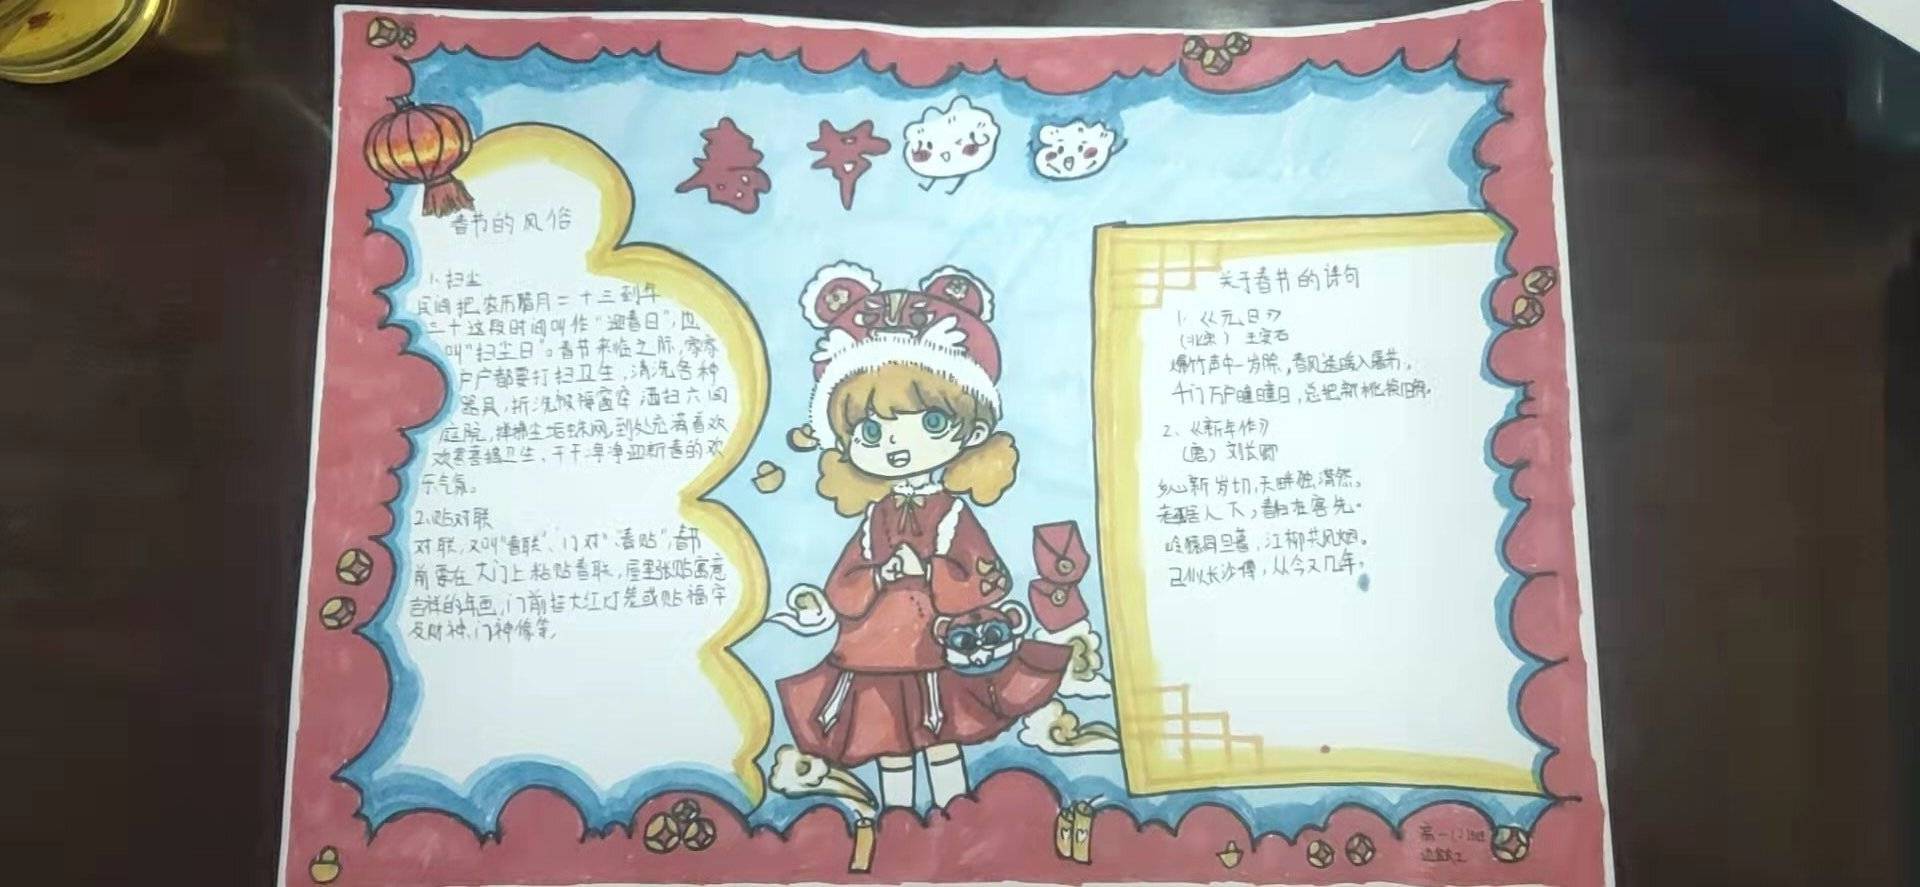 春节
春节的风俗
1、扫尘
民间把农历腊月二十三到年
三十这段时间叫作“迎春日”,也
叫“扫尘日”。春节来临之际,家家
户户都要打扫卫生,清洗各种
器具,拆洗被褥窗帘,洒扫六闾
庭院,掸拂尘垢蛛网,到处充满着欢
欢喜喜搞卫生、干干净净迎新春的欢
乐气氛。
2、贴对联
对联,又叫“春联”、门对”、春贴”,春节
前要在大门上粘贴春联,屋里张贴寓意
吉祥的年画,门前挂大红灯笼或贴福字
及财神、门神像等,
关于春节的诗句
1、《元日》
(北宋) 王安石
爆竹声中一岁除,春风送暖入屠苏。
千门万户曈曈日,总把新桃换旧符。
2、《新年作》
(唐) 刘长卿
乡心新岁切,天畔独潸然。
老至居人下,春归在客先。
岭猿同旦暮,江柳共风烟。
已似长沙傅,从今又几年。
高一